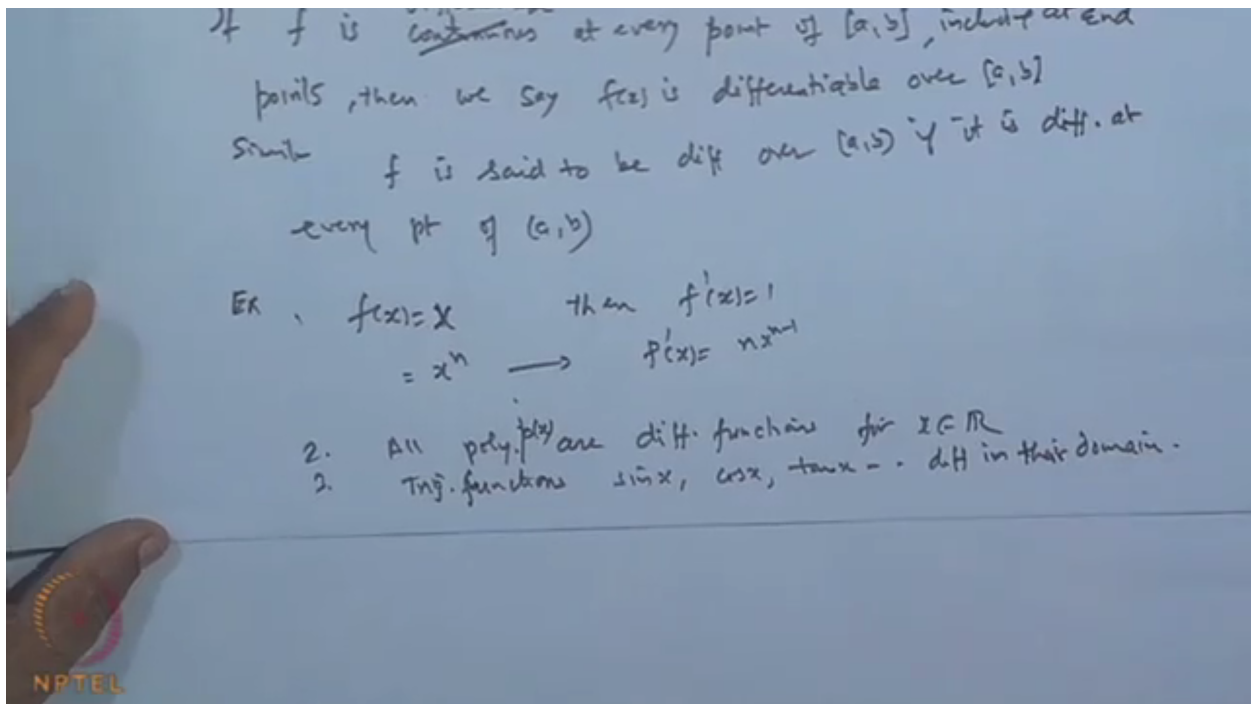 If f is continuous at every point of [a,b], including at end
points, then we say f(x) is differentiable over [a,b]
Simil f is said to be diff over (a,b) if it is diff. at
every pt of (a,b)
Ex 1. f(x)=x then f'(x)=1
= x^n ⟶ f'(x)= nx^{n-1}
2. All poly. p(x) are diff. functions for x∈ℝ
3. Trig. functions sinx, cosx, tanx -- diff in their domain.
NPTEL